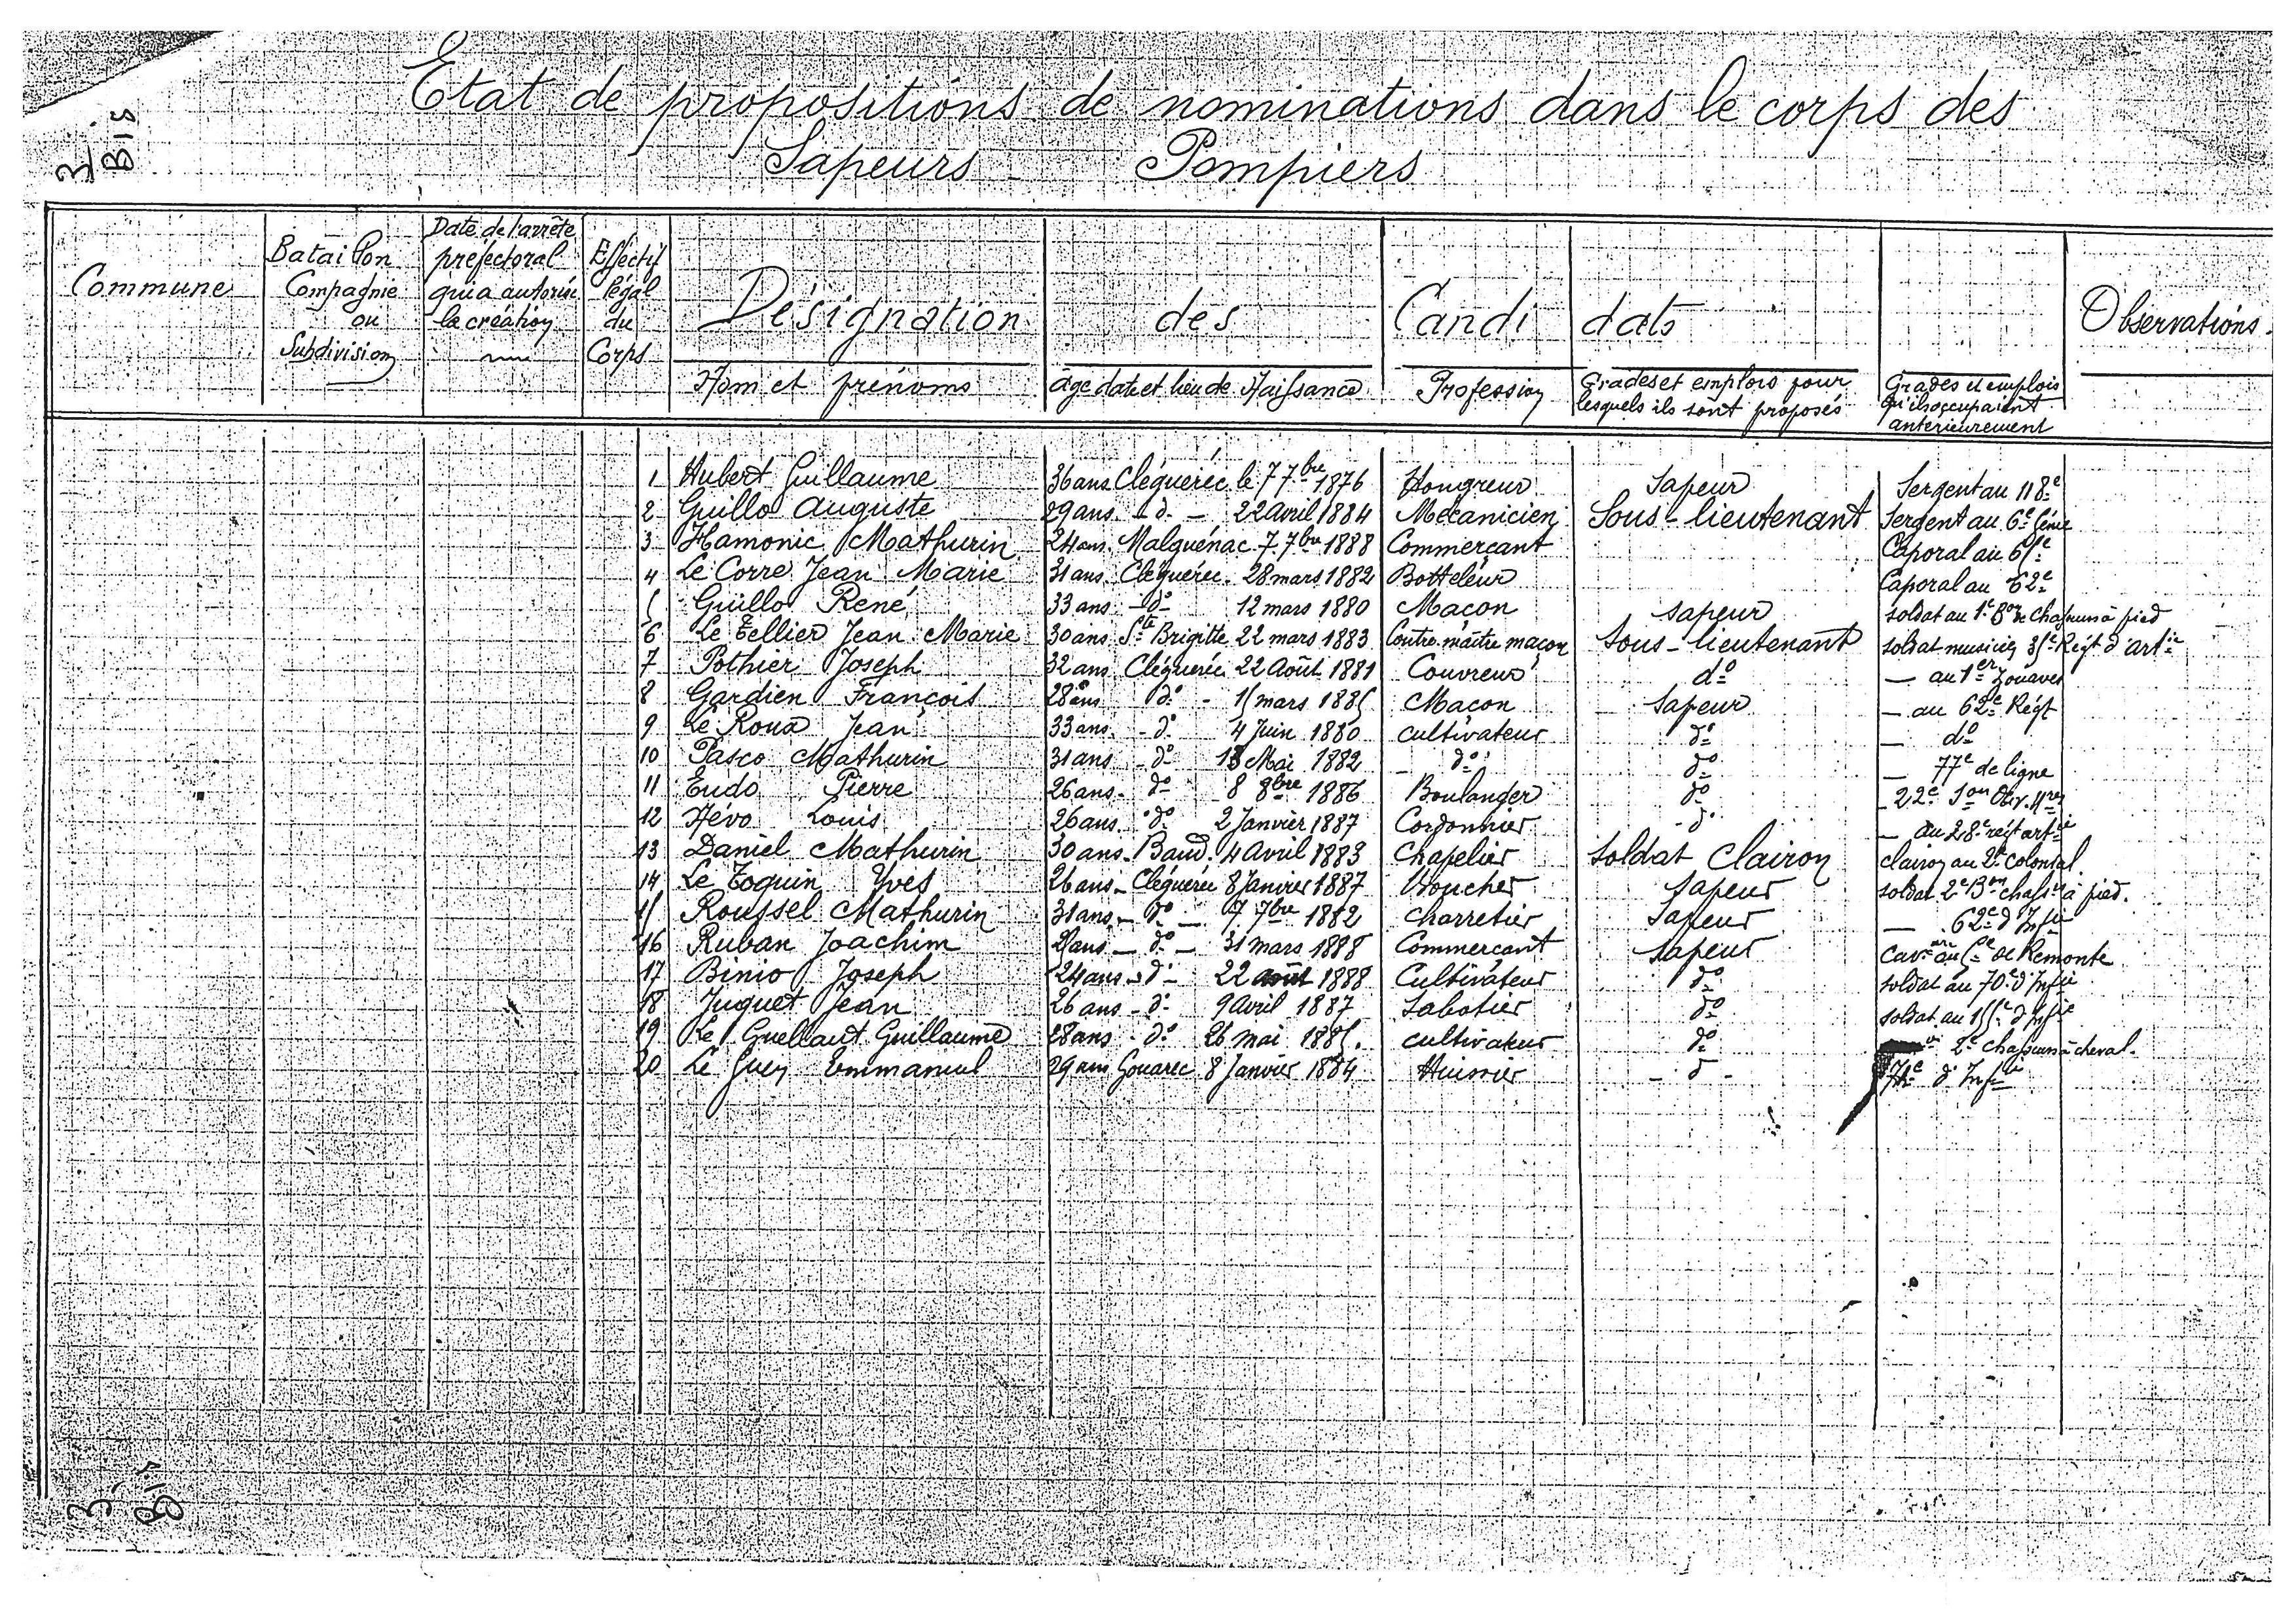 Etat de propositions de nominations dans le corps des
Sapeurs Pompiers
3 Bis
Commune
Bataillon Compagnie ou Subdivision
Date de l'arrêté préfectoral qui a autorisé la création
Effectif légal du Corps
Désignation des Candidats
Observations.
Nom et prénoms
âge date et lieu de Naissance
Profession
Grades et emplois pour lesquels ils sont proposés
Grades et emplois qu'ils occupaient antérieurement
1 Hubert Guillaume 36 ans Cléguérec le 7 7bre 1876 Hongreur Sapeur Sergent au 118e
2 Guillo Auguste 29 ans - d° - 22 Avril 1884 Mécanicien Sous-lieutenant Sergent au 6e Génie
3 Hamonic Mathurin 24 ans. Malguénac 7 7bre 1888 Commerçant Caporal au
4 Le Corre Jean Marie 31 ans. Cléguérec. 28 mars 1882 Botteleur Caporal au 62e
5 Guillo René 33 ans - d° - 12 mars 1880 Maçon sapeur soldat au 1er Bon de Chasseurs à pied
6 Le Tellier Jean Marie 30 ans Ste Brigitte 22 mars 1883 Contre-maître maçon Sous-lieutenant soldat musicien 35e Régt d'artie
7 Pothier Joseph 32 ans Cléguérec 22 Août 1881 Couvreur d° — au 1er Zouaves
8 Gardien François 28 ans d° - 15 mars 1885 Maçon Sapeur — au 62e Régt
9 Le Roux Jean 33 ans. - d° 4 Juin 1880 cultivateur d° — d°
10 Pasco Mathurin 31 ans - d° 13 Mai 1882 - d° d° — 77e de ligne
11 Eudo Pierre 26 ans. d° 8 8bre 1886 Boulanger d° - 22e Son
12 Hévo Louis 26 ans. d° 2 Janvier 1887 Cordonnier - d° — au 28e régt artie
13 Daniel Mathurin 30 ans. Baud. 4 Avril 1883 Chapelier Soldat Clairon clairon au 2e colonial.
14 Le Toquin Yves 26 ans - Cléguérec 8 Janvier 1887 Boucher Sapeur soldat 2e Bon chassrs à pied.
15 Roussel Mathurin 31 ans - d° - 7 7bre 1882 charretier Sapeur — 62e d'Infie
16 Ruban Joachim ans - d° - 31 mars 1888 Commercant Sapeur de Remonte
17 Binio Joseph 24 ans - d° - 22 août 1888 Cultivateur d° soldat au 70e d'Infie
18 Juquet Jean 26 ans - d° 9 Avril 1887 Sabotier d° soldat au 155e d'Infie
19 Le Guellaut Guillaume 28 ans - d° 26 mai 1885. cultivateur d° 2e Chasseurs à cheval.
20 Le Guen Emmanuel 29 ans Gouarec 8 Janvier 1884 Huissier - d° - d'Infie
3 Bis